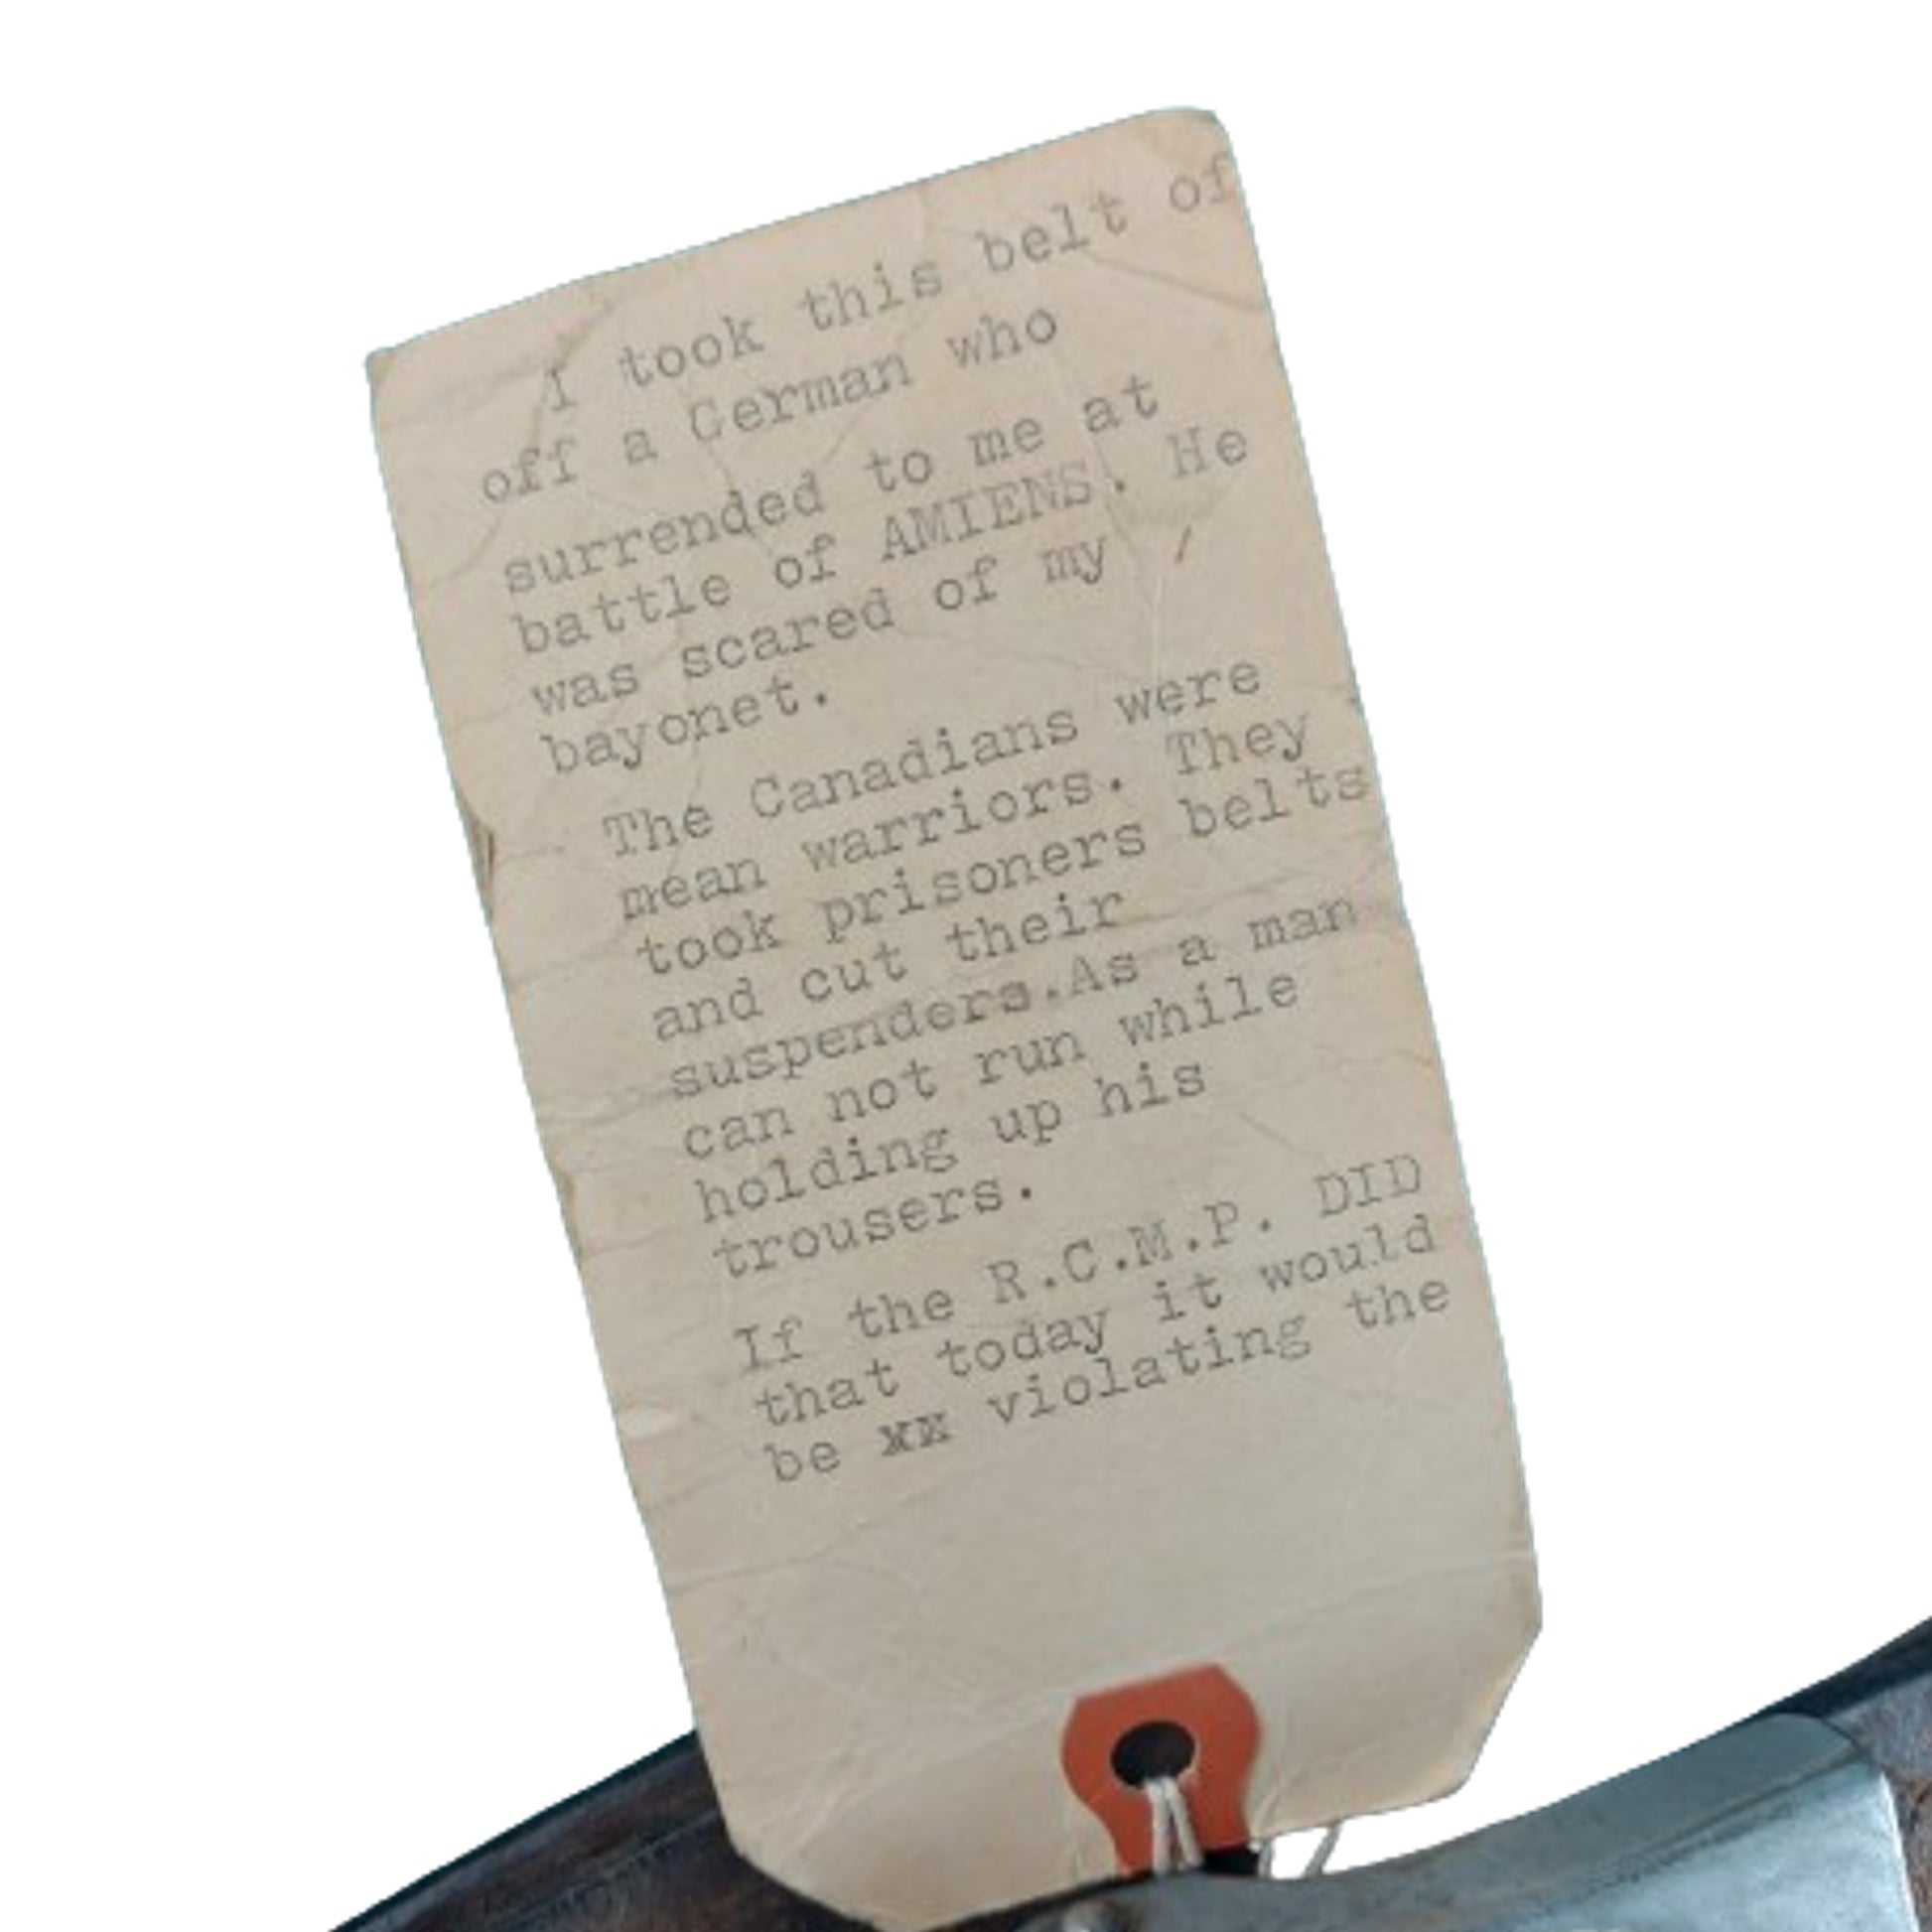 I took this belt of
off a German who
surrended to me at
battle of AMIENS. He
was scared of my /
bayonet.
The Canadians were
mean warriors. They
took prisoners belts
and cut their
suspenders.As a man
can not run while
holding up his
trousers.
If the R.C.M.P. DID
that today it would
be xx violating the